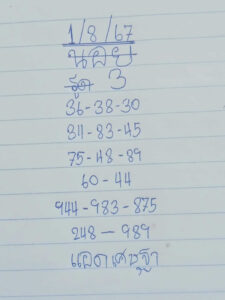 1/8/67
นอย
รูด 3
36-38-30
84-83-45
75-48-89
60-44
944-983-875
248-989
แอดเศรษฐา